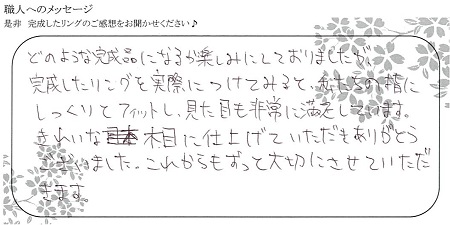 職人へのメッセージ
是非 完成したリングのご感想をお聞かせください♪
どのような完成品になるか楽しみにしておりましたが、
完成したリングを実際につけてみると、私たちの指に
しっくりとフィットし、見た目も非常に満足しています。
きれいな木目に仕上げていただきありがとう
ございました。これからもずっと大切にさせていただ
きます。